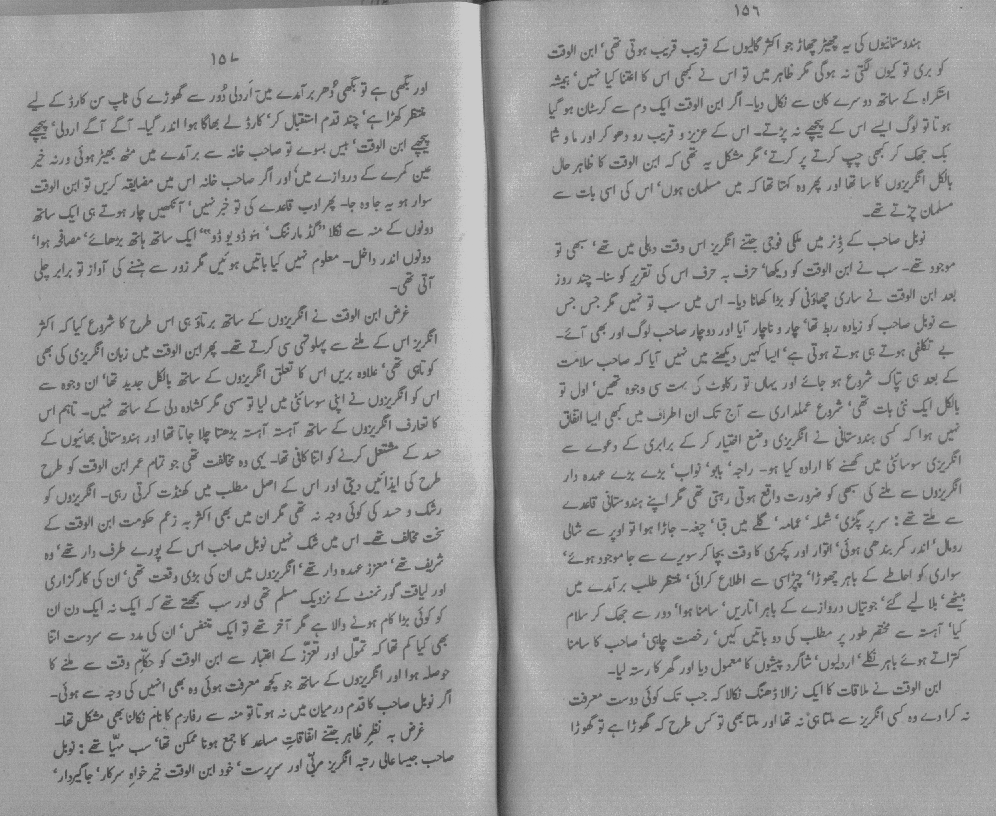 ١٥٦
ہندوستانیوں کی یہ چھیڑ چھاڑ جو اکثر گالیوں کے قریب قریب ہوتی تھی‘ ابن الوقت
کو بری تو کیوں لگتی نہ ہوگی مگر ظاہر میں تو اس نے کبھی اس کا اعتنا کیا نہیں‘ ہمیشہ
استکراہ کے ساتھ دوسرے کان سے نکال دیا۔ اگر ابن الوقت ایک دم سے کرسٹان ہو گیا
ہوتا تو لوگ ایسے اس کے پیچھے نہ پڑتے۔ اس کے عزیز و قریب رو دھو کر اور ما و شما
بک جھک کر کبھی چپ کرتے پر کرتے‘ مگر مشکل یہ تھی کہ ابن الوقت کا ظاہر حال
بالکل انگریزوں کا سا تھا اور پھر وہ کہتا تھا کہ میں مسلمان ہوں‘ اس کی اسی بات سے
مسلمان چڑتے تھے۔
نوبل صاحب کے ڈنر میں ملکی فوجی جتنے انگریز اس وقت دہلی میں تھے‘ سبھی تو
موجود تھے۔ سب نے ابن الوقت کو دیکھا‘ حرف بہ حرف اس کی تقریر کو سنا۔ چند روز
بعد ابن الوقت نے ساری چھاؤنی کو بڑا کھانا دیا۔ اس میں سب تو نہیں مگر جس جس
سے نوبل صاحب کو زیادہ ربط تھا‘ چار و ناچار آیا اور دوچار صاحب لوگ اور بھی آئے۔
بے تکلفی ہوتے ہی ہوتے ہوتی ہے‘ ایسا کہیں دیکھنے میں نہیں آیا کہ صاحب سلامت
کے بعد ہی تپاک شروع ہو جائے اور یہاں تو رکاوٹ کی بہت سی وجوہ تھیں‘ اول تو
بالکل ایک نئی بات تھی‘ شروع عملداری سے آج تک ان اطراف میں کبھی ایسا اتفاق
نہیں ہوا کہ کسی ہندوستانی نے انگریزی وضع اختیار کر کے برابری کے دعوے سے
انگریزی سوسائٹی میں گھسنے کا ارادہ کیا ہو۔ راجہ‘ بابو‘ نواب‘ بڑے بڑے عہدہ دار
انگریزوں سے ملنے کی سبھی کو ضرورت واقع ہوتی رہتی تھی مگر اپنے ہندوستانی قاعدے
سے ملتے تھے : سر پر پگڑی‘ شملہ‘ عمامہ‘ گلے میں قبا‘ چغہ۔ جاڑا ہوا تو اوپر سے شالی
رومال‘ اندر کمر بندھی ہوئی‘ اتوار اور کچہری کا وقت بچا کر سویرے سے جا موجود ہوئے‘
سواری کو احاطے کے باہر چھوڑا‘ چپڑاسی سے اطلاع کرائی‘ منتظر طلب برآمدے میں
بیٹھے‘ بلا لیے گئے‘ جوتیاں دروازے کے باہر اتاریں‘ سامنا ہوا‘ دور سے جھک کر سلام
کیا‘ آہستہ سے مختصر طور پر مطلب کی دو باتیں کیں‘ رخصت چاہی‘ صاحب کا سامنا
کتراتے ہوئے باہر نکلے‘ اردلیوں‘ شاگرد پیشوں کا معمول دیا اور گھر کا رستہ لیا۔
ابن الوقت نے ملاقات کا ایک نرالا ڈھنگ نکالا کہ جب تک کوئی دوست معرفت
نہ کرا دے وہ کسی انگریز سے ملتا ہی نہ تھا اور ملتا بھی تو کس طرح کہ گھوڑا ہے تو گھوڑا
١٥٧
اور بگھی ہے تو بگھی دُھر برآمدے میں‘ اَردلی دُور سے گھوڑے کی ٹاپ سن کارڈ کے لیے
منتظر کھڑا ہے‘ چند قدم استقبال کر‘ کارڈ لے بھاگا ہوا اندر گیا۔ آگے آگے اردلی‘ پیچھے
پیچھے ابن الوقت‘ بیس بسوے تو صاحب خانہ سے برآمدے میں مٹھ بھیڑ ہوئی ورنہ خیر
عین کمرے کے دروازے میں‘ اور اگر صاحب خانہ اس میں مضایقہ کریں تو ابن الوقت
سوار ہو یہ جا وہ جا۔ پھر ادب قاعدے کی تو خبر نہیں‘ آنکھیں چار ہوتے ہی ایک ساتھ
دونوں کے منہ سے نکلا ”گڈ مارننگ‘ ہئو ڈو یو ڈو“‘ ایک ساتھ ہاتھ بڑھائے‘ مصافحہ ہوا‘
دونوں اندر داخل۔ معلوم نہیں کیا باتیں ہوئیں مگر زور سے ہنسنے کی آواز تو برابر چلی
آتی تھی۔
غرض ابن الوقت نے انگریزوں کے ساتھ برتاؤ ہی اس طرح کا شروع کیا کہ اکثر
انگریز اس کے ملنے سے پہلوتہی سی کرتے تھے۔ پھر ابن الوقت میں زبان انگریزی کی بھی
کوتاہی تھی‘ علاوہ بریں اس کا تعلق انگریزوں کے ساتھ بالکل جدید تھا‘ ان وجوہ سے
اس کو انگریزوں نے اپنی سوسائٹی میں لیا تو سہی مگر کشادہ دلی کے ساتھ نہیں۔ تاہم اس
کا تعارف انگریزوں کے ساتھ آہستہ آہستہ بڑھتا چلا جاتا تھا اور ہندوستانی بھائیوں کے
حسد کے مشتعل کرنے کو اتنا کافی تھا۔ یہی وہ مخالفت تھی جو تمام عمر ابن الوقت کو طرح
طرح کی ایذائیں دیتی اور اس کے اصل مطلب میں کھنڈت کرتی رہی۔ انگریزوں کو
رشک و حسد کی کوئی وجہ نہ تھی مگر ان میں بھی اکثر بہ زعم حکومت ابن الوقت کے
سخت مخالف تھے۔ اس میں شک نہیں نوبل صاحب اس کے پورے طرف دار تھے‘ وہ
شریف تھے‘ معزز عہدہ دار تھے‘ انگریزوں میں ان کی بڑی وقعت تھی‘ ان کی کارگزاری
اور لیاقت گورنمنٹ کے نزدیک مسلم تھی اور سب سمجھتے تھے کہ ایک نہ ایک دن ان
کو کوئی بڑا کام ہونے والا ہے مگر آخر تھے تو ایک متنفس‘ ان کی مدد سے سردست اتنا
بھی کیا کم تھا کہ تموّل اور تعزّز کے اعتبار سے ابن الوقت کو حکّامِ وقت سے ملنے کا
حوصلہ ہوا اور انگریزوں کے ساتھ جو کچھ معرفت ہوئی وہ بھی انہیں کی وجہ سے ہوئی۔
اگر نوبل صاحب کا قدم درمیان میں نہ ہوتا تو منہ سے رفارمر کا نام نکالنا بھی مشکل تھا۔
غرض بہ نظرِ ظاہر جتنے اتفاقاتِ مساعد کا جمع ہونا ممکن تھا‘ سب مہیّا تھے : نوبل
صاحب جیسا عالی رتبہ انگریز مربّی اور سرپرست‘ خود ابن الوقت خیر خواہِ سرکار‘ جاگیردار‘